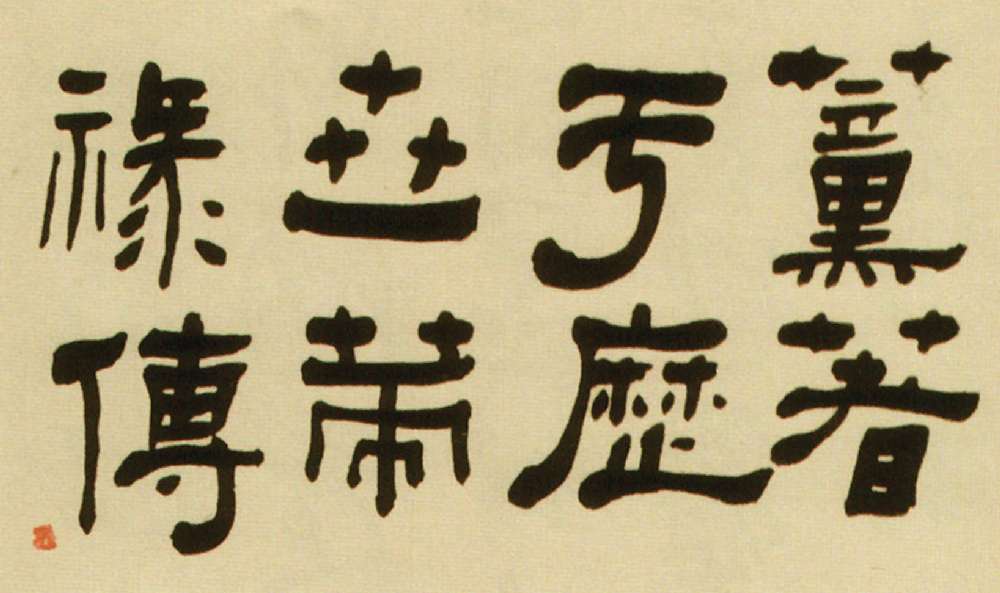 薰著
于歷
世芾
祿傳